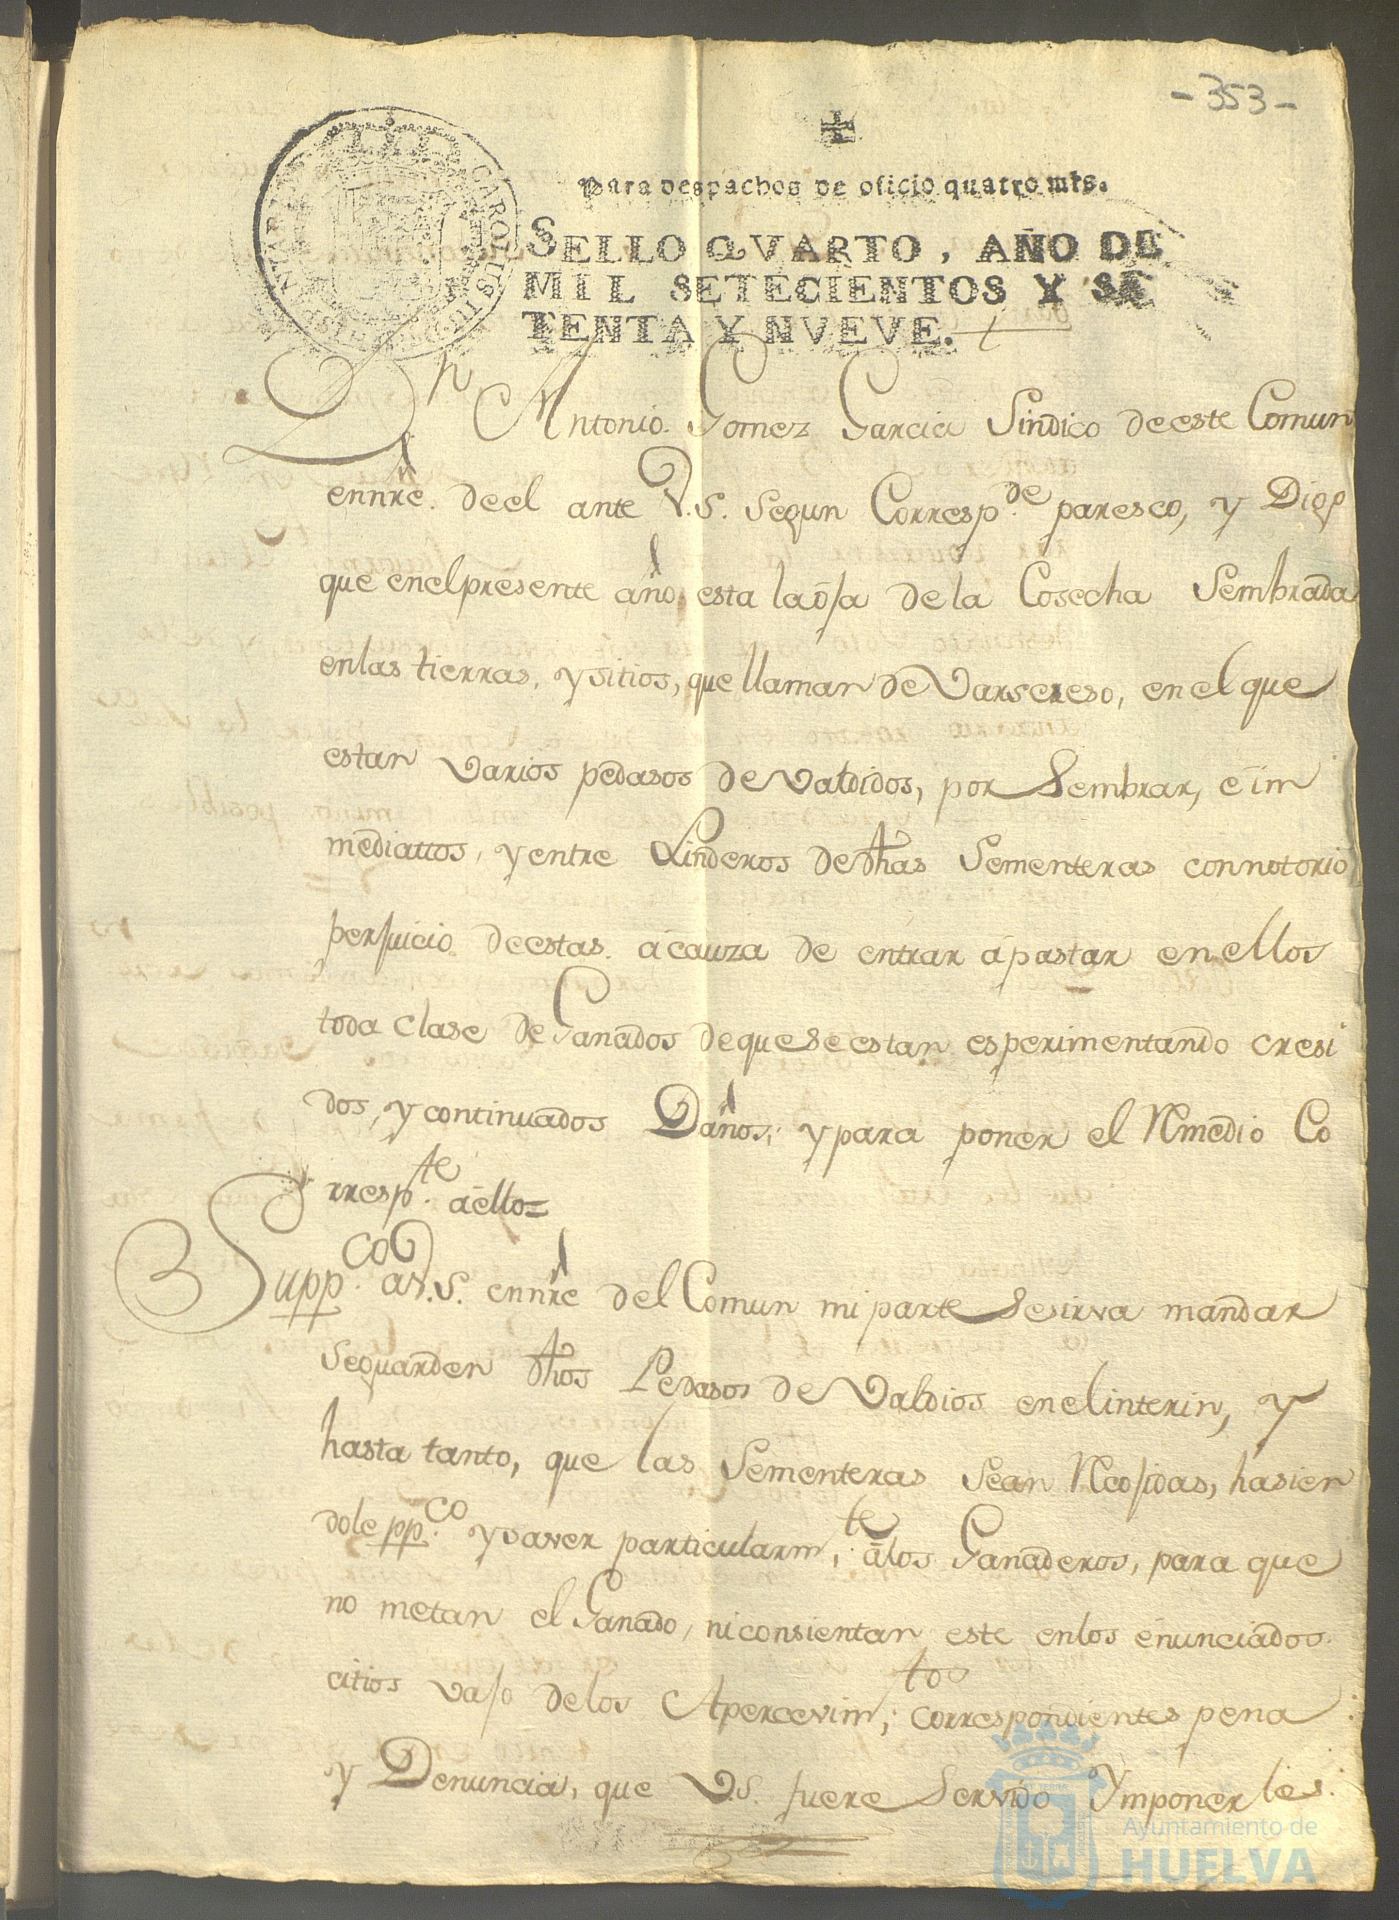 -353-
Para despachos de oficio quatro mrs.
SELLO QVARTO, AÑO DE
MIL SETECIENTOS Y SE
TENTA Y NVEVE.
Dn Antonio Gomez Garcia Sindico de este Comun
ennre. de el ante V.S. segun Correspde. paresco, y Digo
que en el presente año esta la oja de la Cosecha Sembrada
en las tierras, y sitios, que llaman de Varsereso, en el que
estan varios pedasos de Valdidos, por Sembrar, e im
mediattos, y entre Linderos de dhas Sementeras con notorio
perjuicio de estas. á cauza de entrar á pastar en ellos
toda clase de Ganados de que se estan esperimentando cresi
dos, y continuados Daños; y para poner el Rmedio Co
rrespte. á ello=
Suppco. a V.S. ennre del Comun mi parte se sirva mandar
se guarden dhos Pedasos de Valdios en el interin, y
hasta tanto, que las Sementeras sean Rcojidas, hasien
dole ppco. y saver particularmte. á los Ganaderos, para que
no metan el Ganado, ni consientan este en los enunciados
citios vajo de los Apercevimtos. correspondientes pena
y Denuncia, que V.S. fuere Servido Ymponerles.
Ayuntamiento de
HUELVA